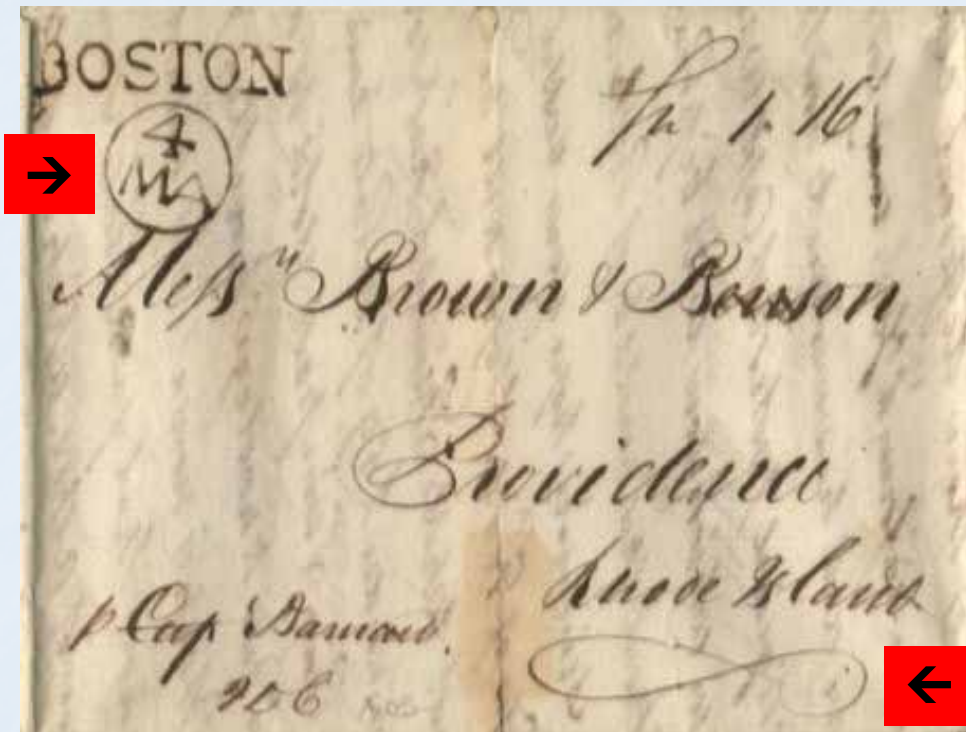 BOSTON
4
MA
Sh 1.16
Messrs Brown & Benson
Providence
Rhode Island
p Cap Barnard